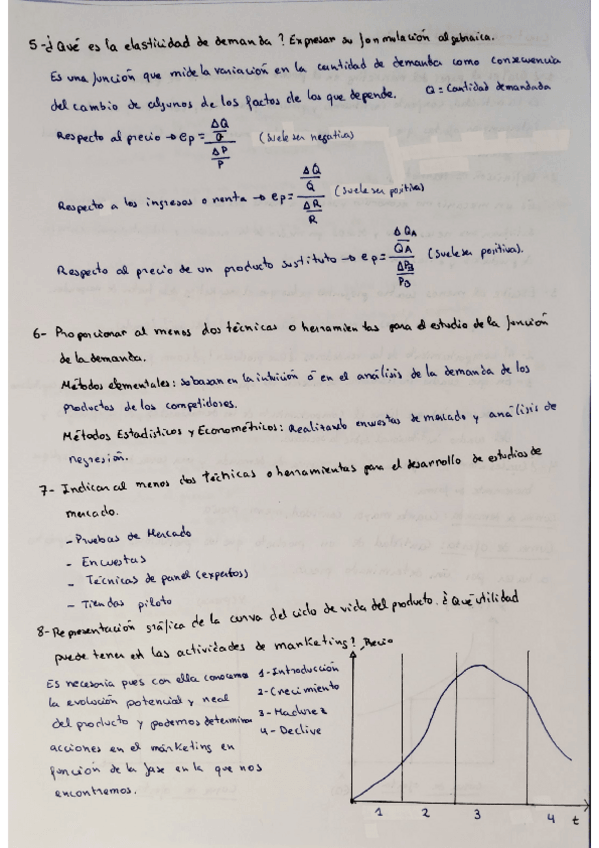 5-¿Qué es la elasticidad de demanda? Expresar su formulación algebraica.
Es una función que mide la variación en la cantidad de demanda como consecuencia
del cambio de algunos de los factos de los que depende. Q = Cantidad demandada
Respecto al precio → ep = ΔQ/Q / ΔP/P (Suele ser negativa)
Respecto a los ingresos o renta → ep = ΔQ/Q / ΔR/R (Suele ser positiva)
Respecto al precio de un producto sustituto → ep = ΔQA/QA / ΔPB/PB (Suele ser positiva).
6- Proporcionar al menos dos técnicas o herramientas para el estudio de la función
de la demanda.
Métodos elementales: se basan en la intuición ó en el análisis de la demanda de los
productos de los competidores.
Métodos Estadísticos y Econométricos: Realizando encuestas de mercado y análisis de
regresión.
7- Indicar al menos dos técnicas o herramientas para el desarrollo de estudios de
mercado.
- Pruebas de Mercado
- Encuestas
- Técnicas de panel (expertos)
- Tiendas piloto
8- Representación gráfica de la curva del ciclo de vida del producto. ¿Qué utilidad
puede tener en las actividades de marketing?
Es necesaria pues con ella conocemos
la evolución potencial y real
del producto y podemos determinar
acciones en el márketing en
función de la fase en la que nos
encontremos.
1-Introducción
2-Crecimiento
3-Madurez
4-Declive
Precio
1 2 3 4 t